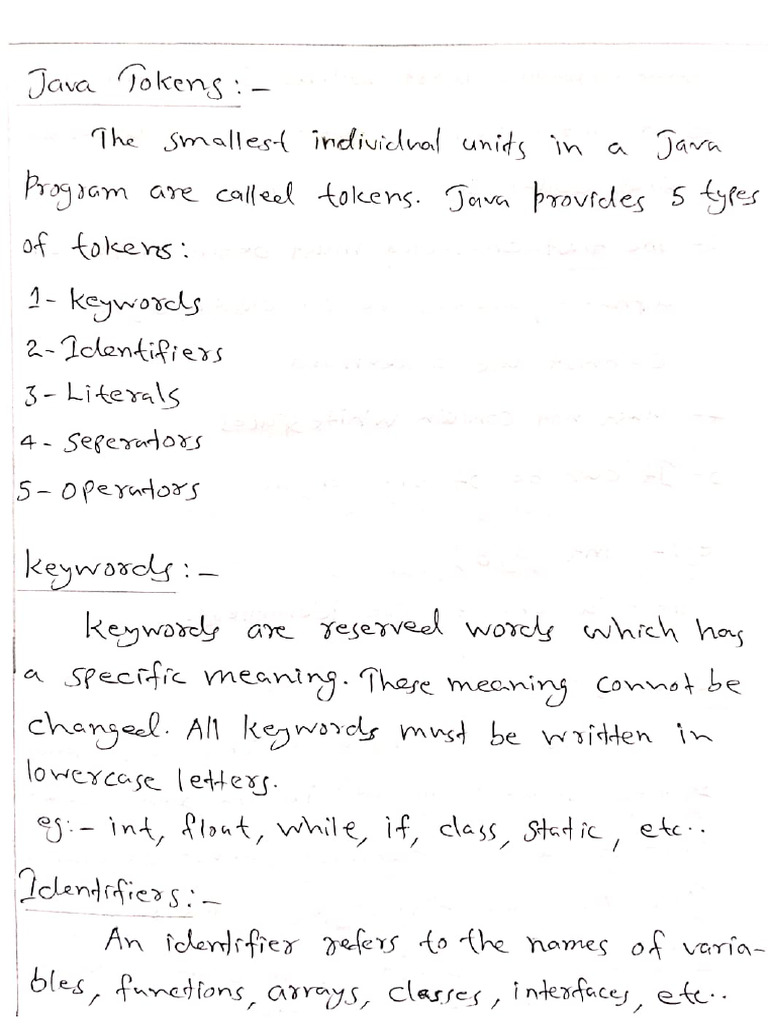 Java Tokens:-
The smallest individual units in a Java
Program are called tokens. Java provides 5 types
of tokens:
1- Keywords
2- Identifiers
3- Literals
4- Seperators
5- Operators
Keywords:-
Keywords are reserved words which has
a specific meaning. These meaning connot be
changed. All keywords must be written in
lowercase letters.
eg:- int, float, while, if, class, static, etc..
Identifiers:-
An identifier refers to the names of varia-
bles, functions, arrays, classes, interfaces, etc..